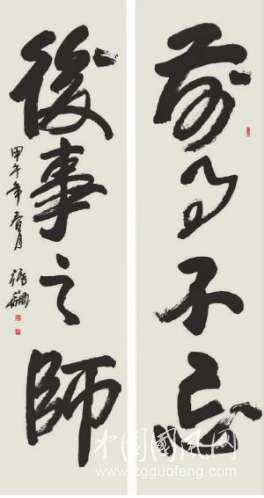 前事不忘
後事之師
甲午年
中国国风网
www.zgguofeng.com